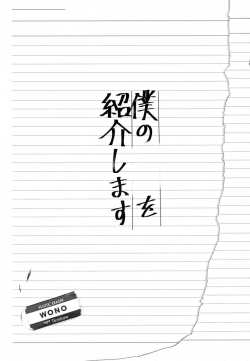 僕の を
紹介します
WONO